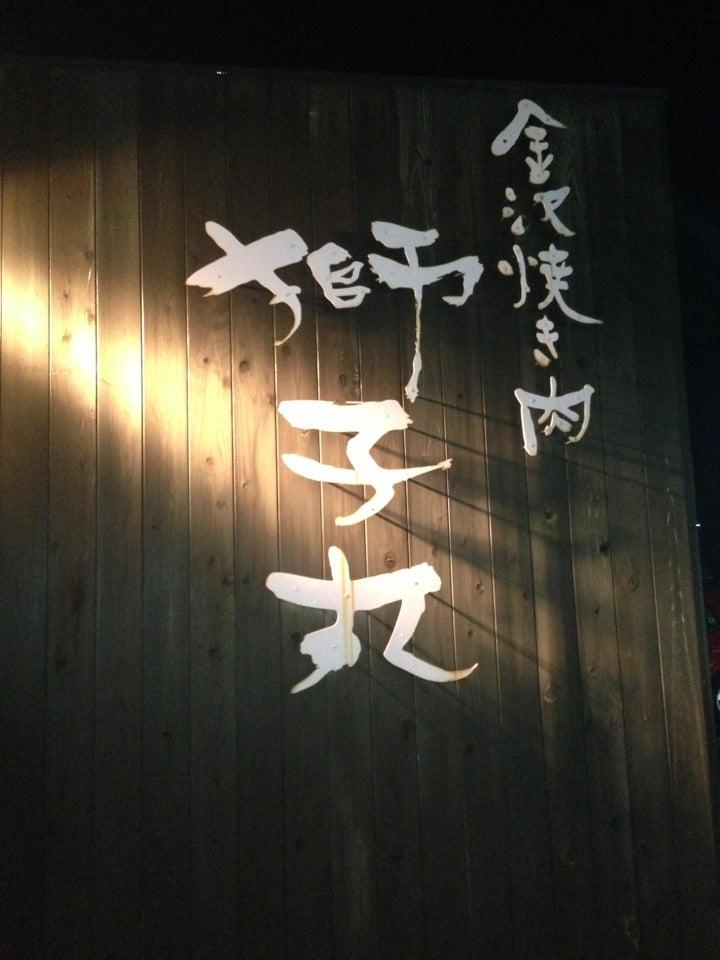 金沢焼き肉
獅子丸